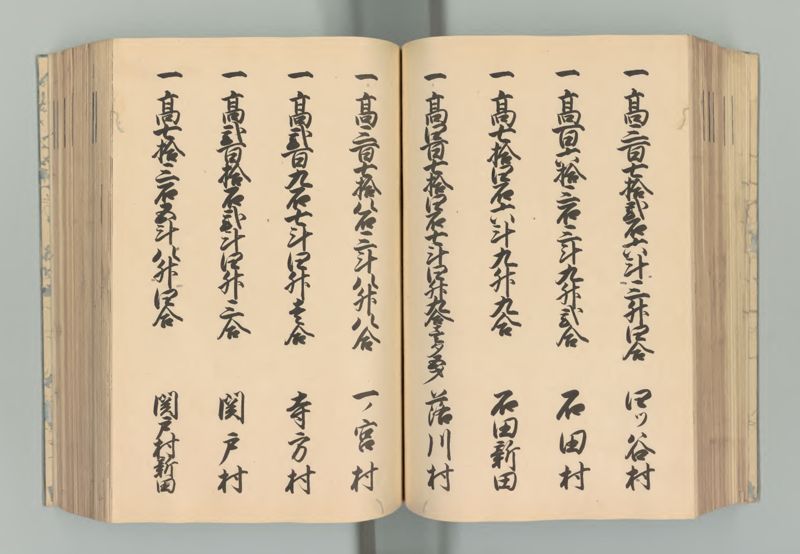 一 高三百七拾弐石六斗三升四合 四ッ谷村
一 高百六拾三石三斗九升弐合 石田村
一 高七拾四石六斗九升九合 石田新田
一 高四百七拾四石七斗四升九合 川村
一 高三百七拾八石三斗八升八合 一ノ宮村
一 高弐百九石七斗四升壱合 寺方村
一 高弐百拾石弐斗四升三合 関戸村
一 高七拾三石五斗八升四合 関戸村新田